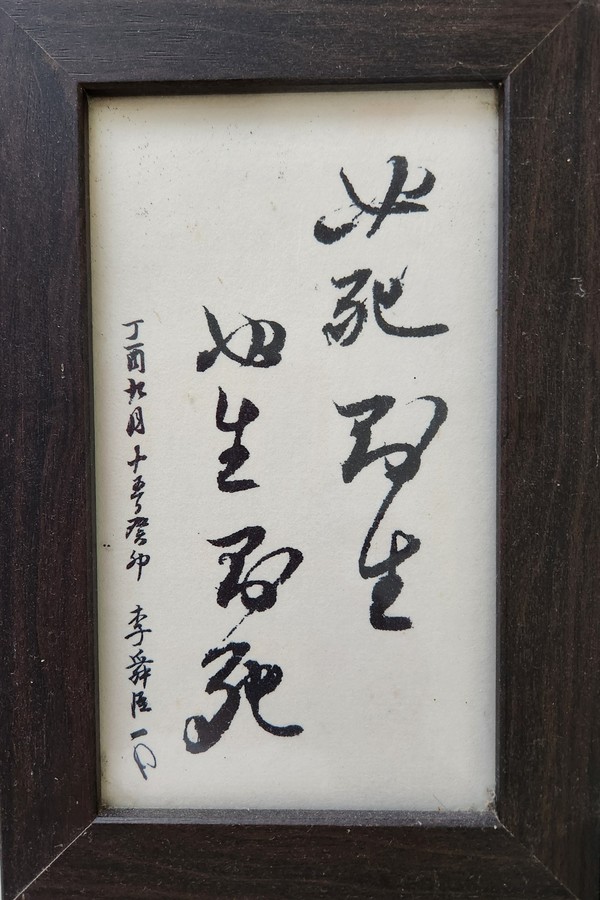 必死則生
必生則死
丁酉九月十五日癸卯 李舜臣